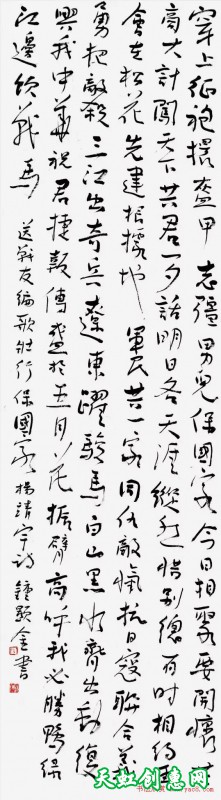 穿上征袍擐盔甲 志强男儿保国家今日相聚要开怀共
商大计闯天下共君一夕话明日各天涯纵然惜别总有时相约再
会在松花 先建根据地 军民共一家同仇敌忾抗日寇联合英
勇把敌杀三江出奇兵辽东跃骏马白山黑水齐出动复
兴我中华祝君捷报传盛于五月花振臂高呼我必胜鸭绿
江边饮战马 送战友编歌壮行保国家 杨靖宇诗 钟显金书
天虹创意网